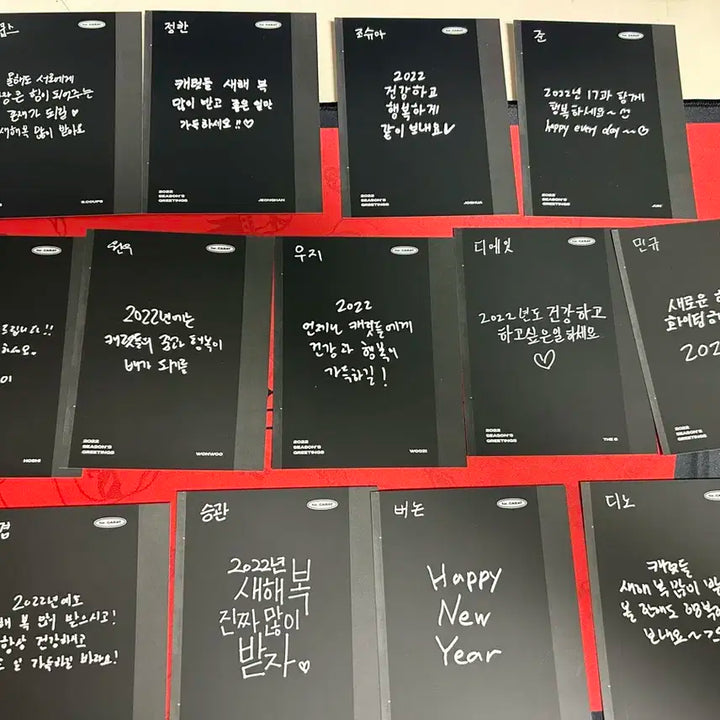 올해도 서로에게
힘이 되어주는
존재가 되길 ♥
새해복 많이 받아요
S.COUPS
정한
to. CARAT
캐럿들 새해 복
많이 받고 좋은 일만
가득하세요!!♡
2022
SEASON'S
GREETINGS
JEONGHAN
죠슈아
to. CARAT
2022
건강하고
행복하게
같이 보내요
2022
SEASON'S
GREETINGS
JOSHUA
준
to. CARAT
2022년 17과 함께
행복하세요~
happy every day ~~
2022
SEASON'S
GREETINGS
JUN
HOSHI
원우
to. CARAT
2022년에는
캐럿들의 꿈과 행복이
배가 되기를
2022
SEASON'S
GREETINGS
WONWOO
우지
to. CARAT
2022
언제나 캐럿들에게
건강과 행복이
가득하길!
2022
SEASON'S
GREETINGS
WOOZI
디에잇
to. CARAT
2022년도 건강하고
하고싶은일 하세요
♡
2022
SEASON'S
GREETINGS
THE 8
민규
새로운
화이팅
202
2022
SEASON'S
GREETINGS
겸
to. CARAT
2022년에도
복 많이 받으시고!
항상 건강하시고
일 가득하길 바라요!
승관
to. CARAT
2022년
새해 복
진짜 많이
받자 ♡
버논
to. CARAT
Happy
New
Year
디노
to. CARAT
캐럿들
새해 복 많이 받
올 한해도 행복
보내요~